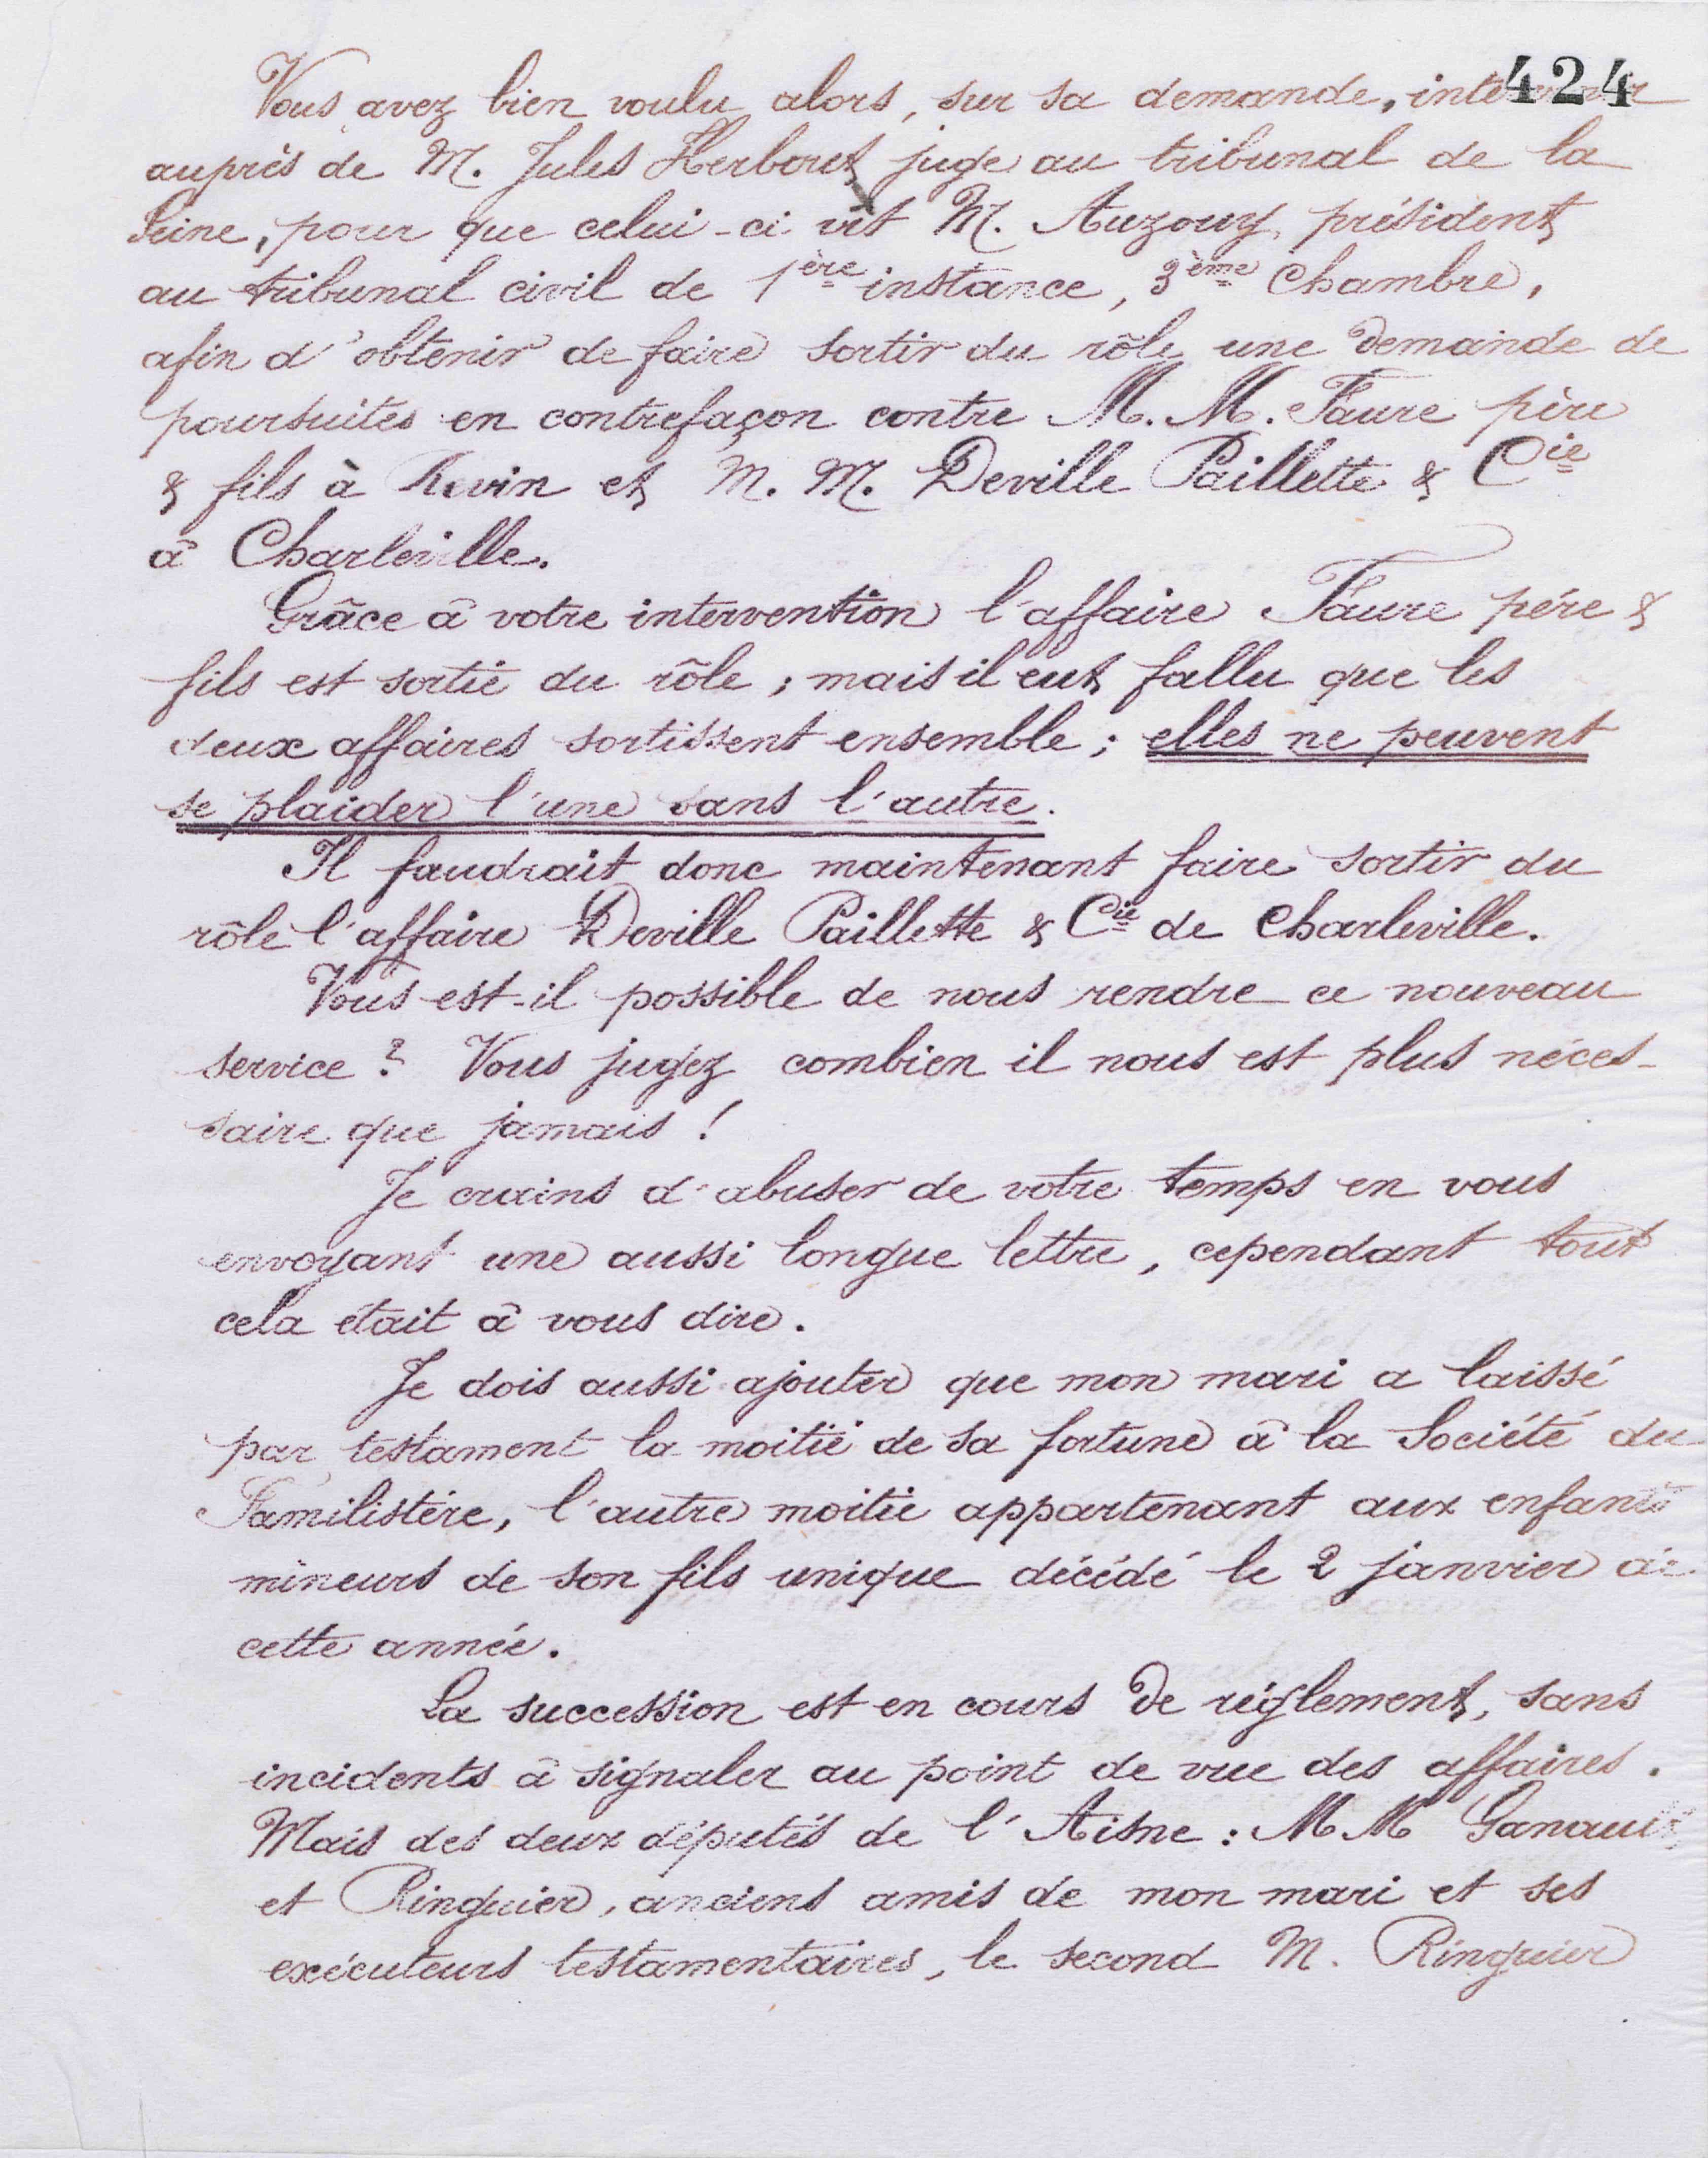 424
Vous avez bien voulu alors, sur sa demande, intervenir
auprès de M. Jules Herboret juge au tribunal de la
Seine, pour que celui-ci vît M. Auzouy, président
au tribunal civil de 1ère instance, 3ème Chambre,
afin d'obtenir de faire sortir du rôle une demande de
poursuites en contrefaçon contre M. M. Faure père
& fils à Revin et M. M. Deville Paillette & Cie
à Charleville.
Grâce à votre intervention l'affaire Faure père &
fils est sortie du rôle ; mais il eut fallu que les
deux affaires sortissent ensemble ; elles ne peuvent
se plaider l'une sans l'autre.
Il faudrait donc maintenant faire sortir du
rôle l'affaire Deville Paillette & Cie de Charleville.
Vous est-il possible de nous rendre ce nouveau
service ? Vous jugez combien il nous est plus néces-
saire que jamais !
Je crains d'abuser de votre temps en vous
envoyant une aussi longue lettre, cependant tout
cela était à vous dire.
Je dois aussi ajouter que mon mari a laissé
par testament la moitié de sa fortune à la Société du
Familistère, l'autre moitié appartenant aux enfants
mineurs de son fils unique décédé le 2 janvier de
cette année.
La succession est en cours de règlement, sans
incidents à signaler au point de vue des affaires.
Mais des deux députés de l'Aisne : M M Ganault
et Ringuier, anciens amis de mon mari et ses
exécuteurs testamentaires, le second M. Ringuier